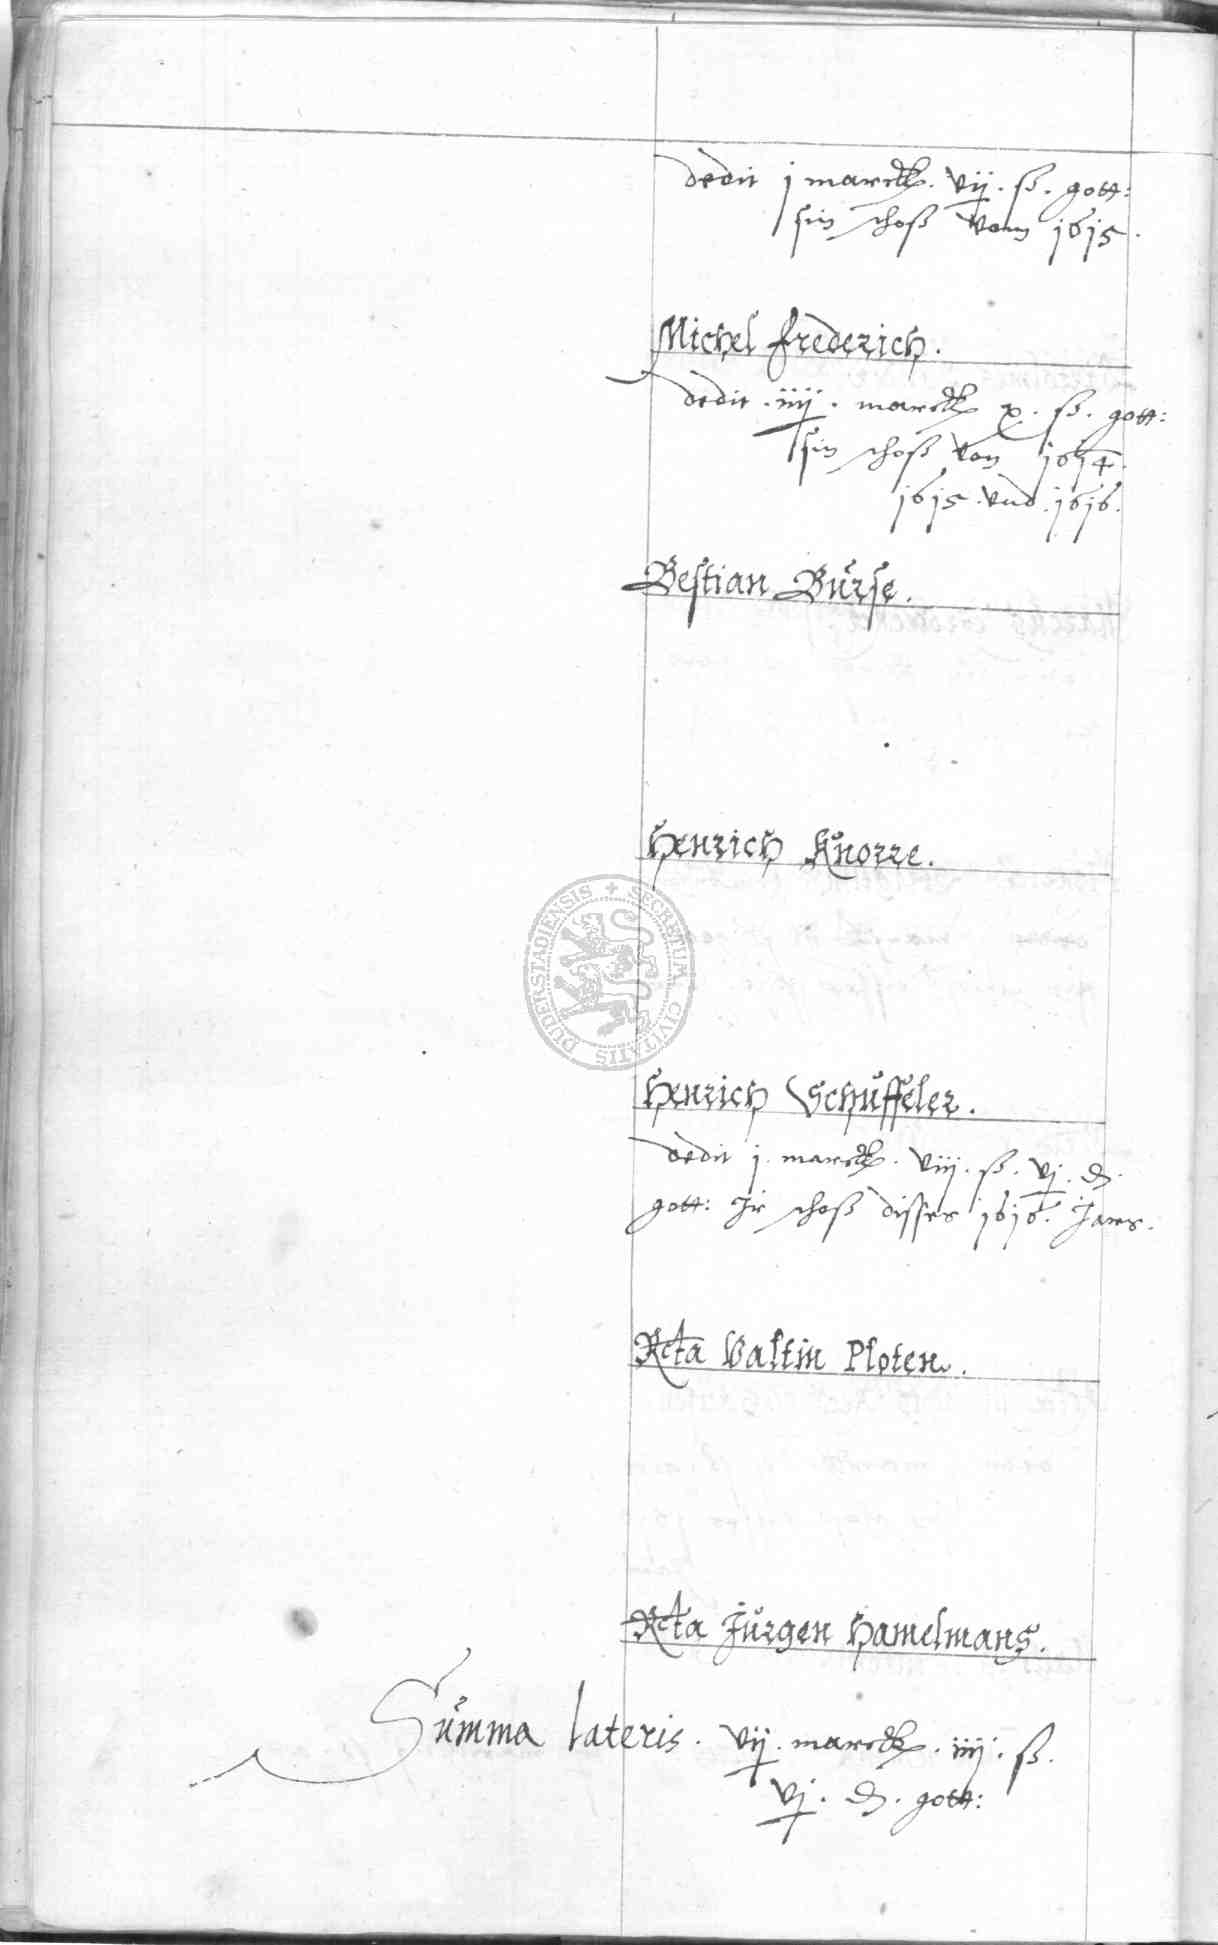 dedit j marck. vij. ß. gott:
sin schoß vom 1615.
Michel Frederich.
dedit. iiij. marck x. ß. gott:
sin schoß von 1614.
1615. vnd. 1616.
Bestian Burse.
Henrich Knorre.
SECRETUM CIVITATIS DUDERSTADIENSIS
Henrich Schuffeler.
dedit j. marck. viij. ß. vj. d.
gott: Jr schoß disses 1616. Jars.
Rcta Valtin Ploten.
Rcta Jurgen Hamelmans.
Summa lateris. vij. marck. iiij. ß.
vj. d. gott: